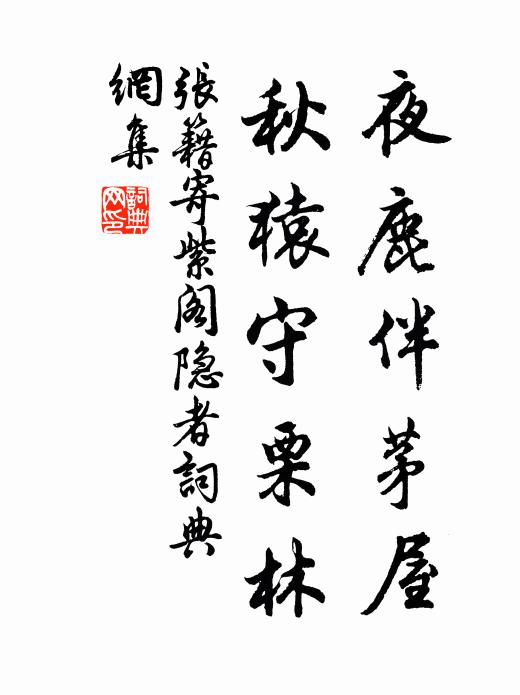 夜鹿伴茅屋
秋猿守栗林
張籍寄紫阁隐者詞典
網集
詞典网印